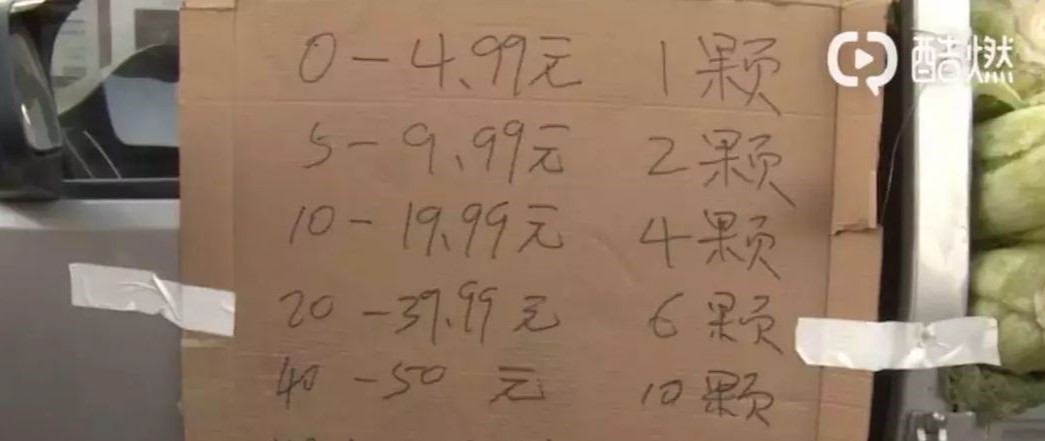 0-4.99元 1颗
酷燃
5-9.99元 2颗
10-19.99元 4颗
20-39.99元 6颗
40-50元 10颗